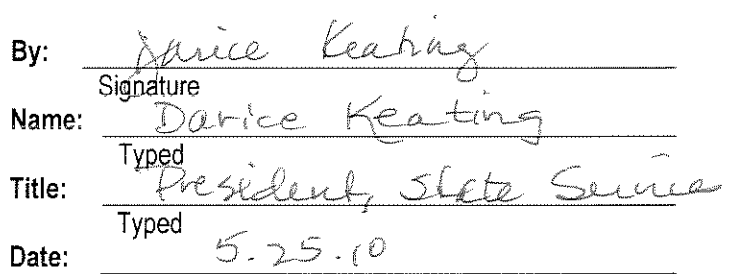 By: Darice Keating
Signature
Name: Darice Keating
Typed
Title: President, State Service
Typed
Date: 5.25.10